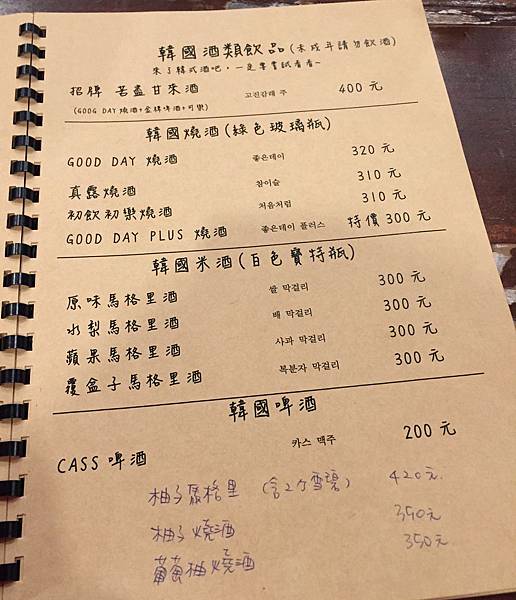 韓國酒類飲品(未成年請勿飲酒)
來了韓式酒吧，一定要嘗試看看~
招牌 苦盡甘來酒 고진감래 주 400 元
(GOOG DAY燒酒+金牌啤酒+可樂)
韓國燒酒(綠色玻璃瓶)
GOOD DAY 燒酒 좋은데이 320 元
真露燒酒 참이슬 310 元
初飲初樂燒酒 처음처럼 310 元
GOOD DAY PLUS 燒酒 좋은데이 플러스 特價 300 元
韓國米酒(白色寶特瓶)
原味馬格里酒 쌀 막걸리 300 元
水梨馬格里酒 배 막걸리 300 元
蘋果馬格里酒 사과 막걸리 300 元
覆盆子馬格里酒 복분자 막걸리 300 元
韓國啤酒
CASS 啤酒 카스 맥주 200 元
柚子馬格里 (含2個雪碧) 420元.
柚子燒酒 350元
葡萄柚燒酒 350元